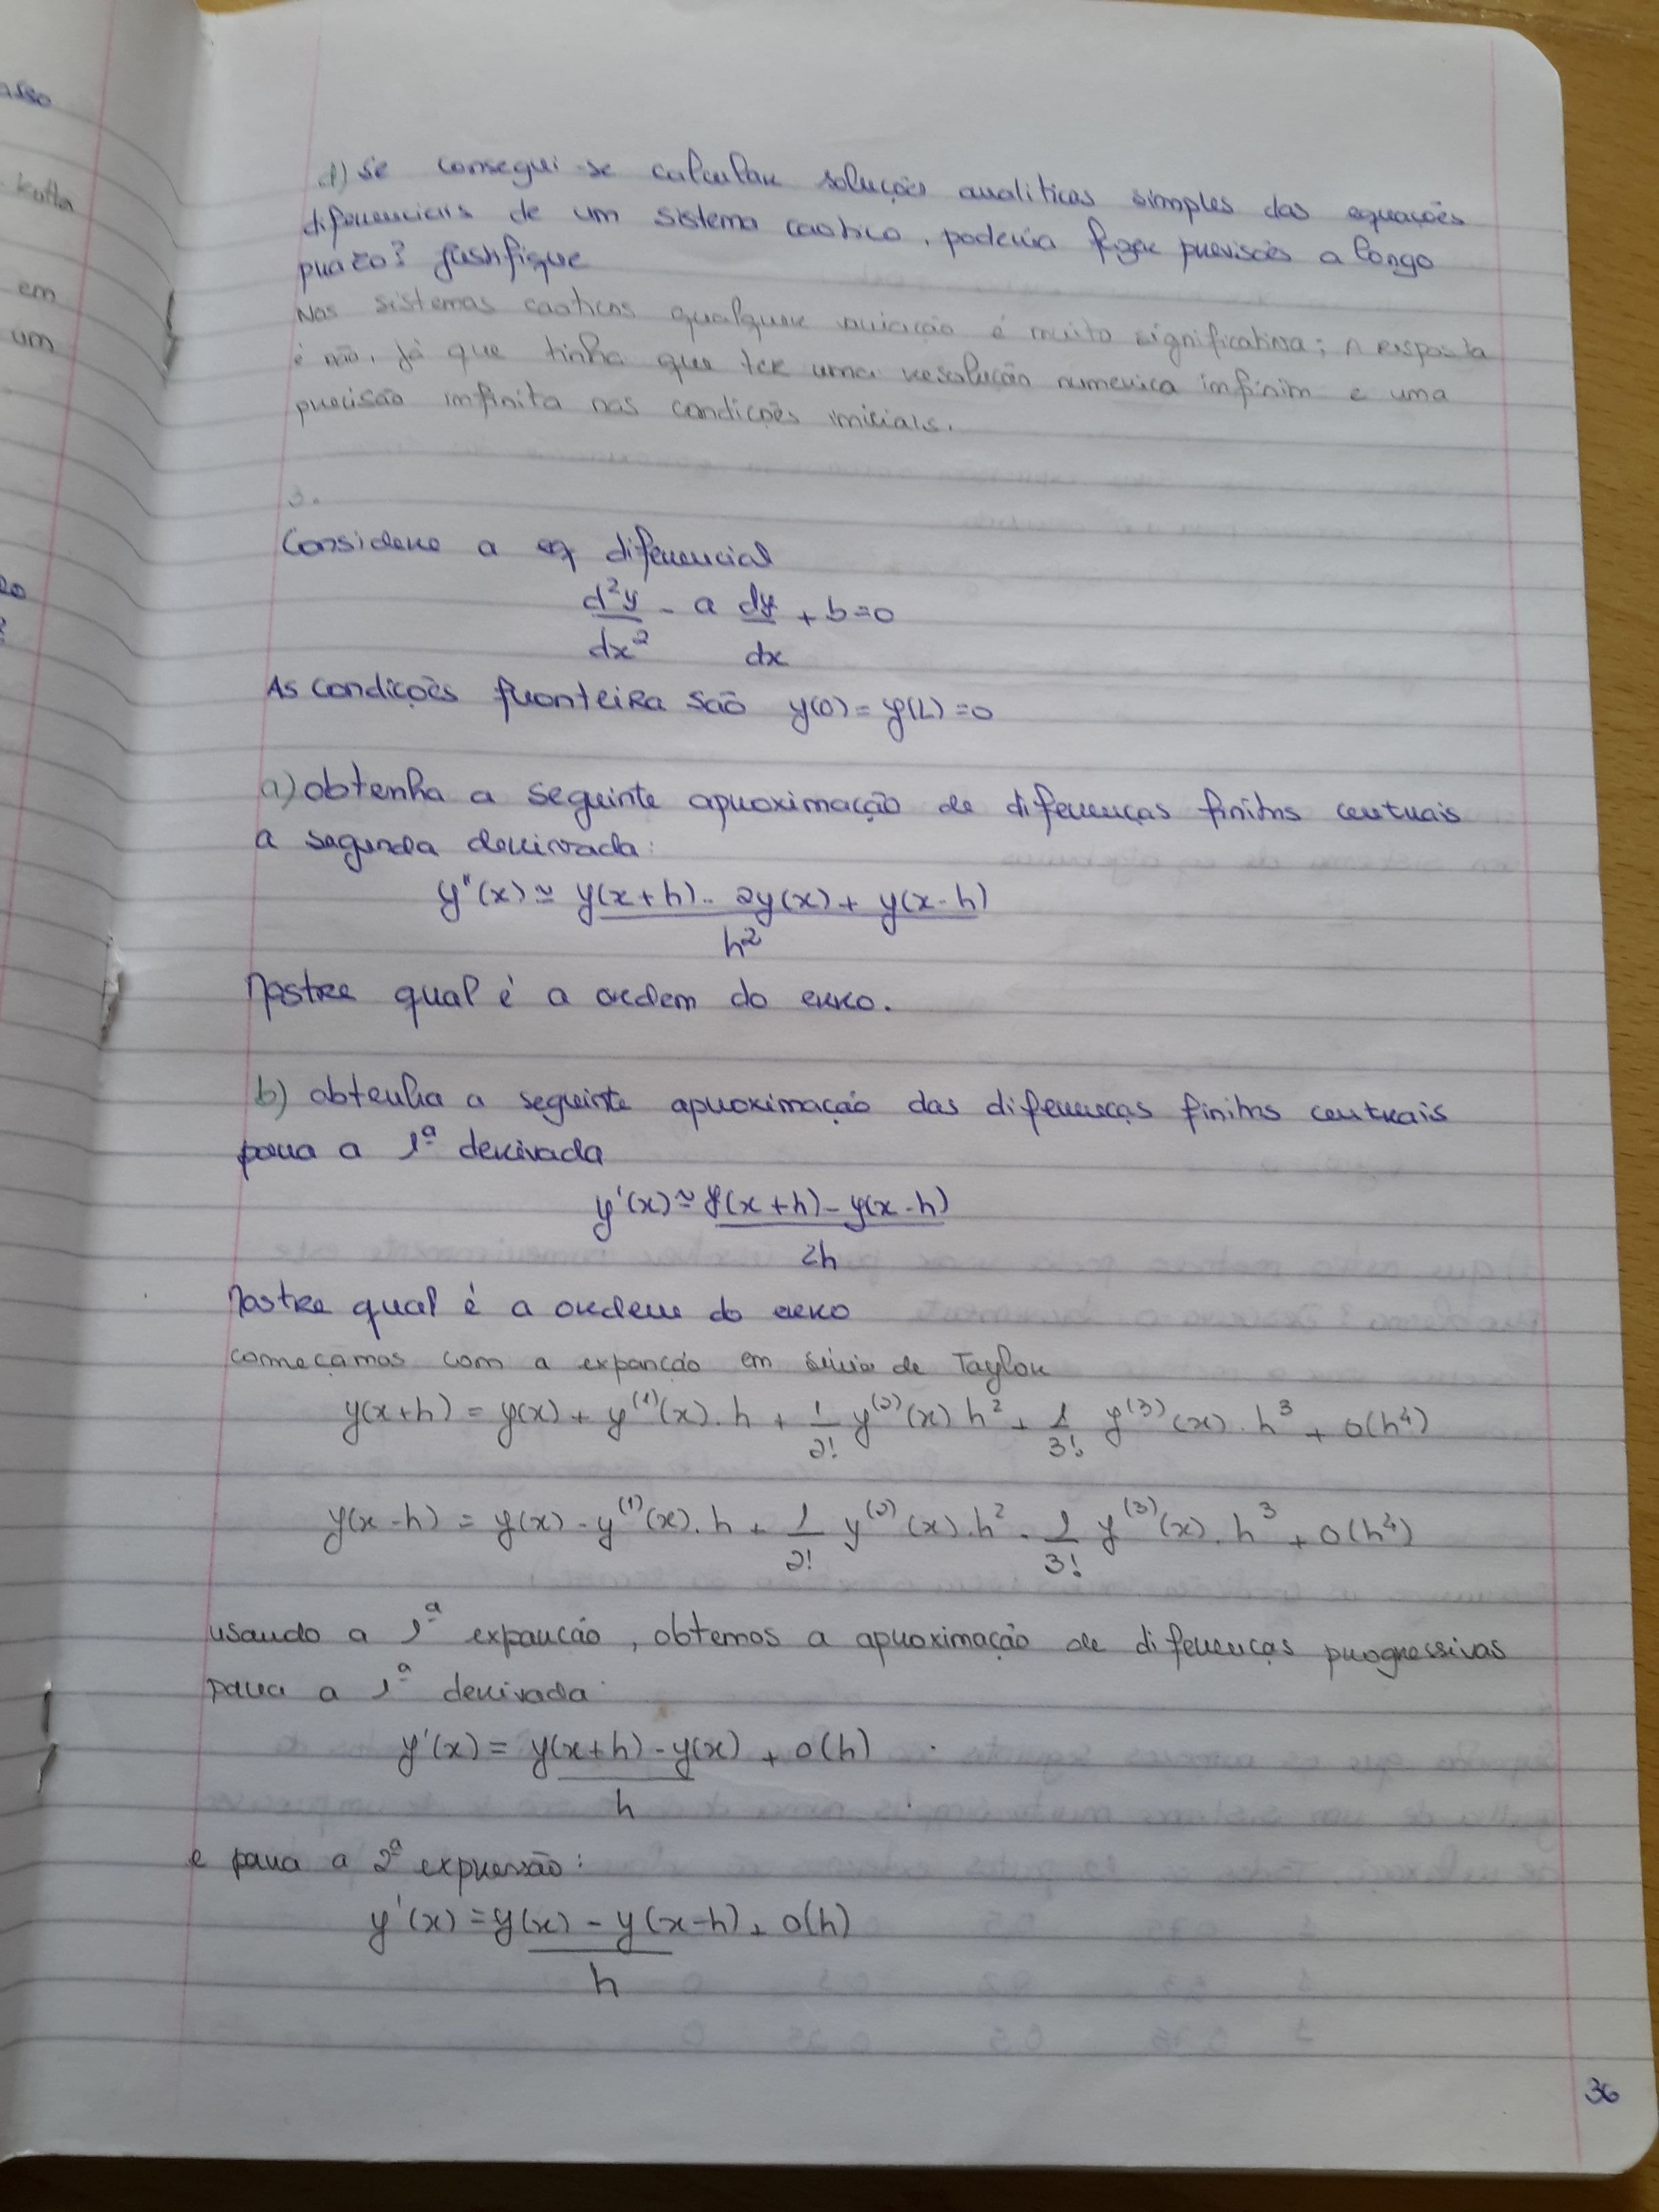 asso
kutta
em
um
d) Se consegui-se calcular soluções analiticas simples das equações
diferenciais de um sistema caotico, poderia fazer previsões a longo
prazo? Justifique
Nos sistemas caoticos qualquer variação é muito significativa; A resposta
é não, já que tinha que ter uma resolução numerica infinim e uma
precisão infinita nas condições iniciais.
3.
Considere a eq diferencial
d²y/dx² - a dy/dx + b = 0
As condições fronteira são y(0) = y(L) = 0
a) obtenha a seguinte aproximação de diferenças finitas centrais
a segunda derivada:
y''(x) ≃ y(x+h) - 2y(x) + y(x-h) / h²
Mostre qual é a ordem do erro.
b) obtenha a seguinte aproximação das diferenças finitas centrais
para a 1ª derivada
y'(x) ≃ y(x+h) - y(x-h) / 2h
Mostre qual é a ordem do erro
começamos com a expanção em série de Taylor
y(x+h) = y(x) + y⁽¹⁾(x).h + 1/2! y⁽²⁾(x) h² + 1/3! y⁽³⁾(x).h³ + O(h⁴)
y(x-h) = y(x) - y⁽¹⁾(x).h + 1/2! y⁽²⁾(x).h² - 1/3! y⁽³⁾(x).h³ + O(h⁴)
usando a 1ª expanção, obtemos a aproximação de diferenças progressivas
para a 1ª derivada
y'(x) = y(x+h) - y(x) / h + O(h)
e para a 2ª expressão:
y'(x) = y(x) - y(x-h) / h + O(h)
36